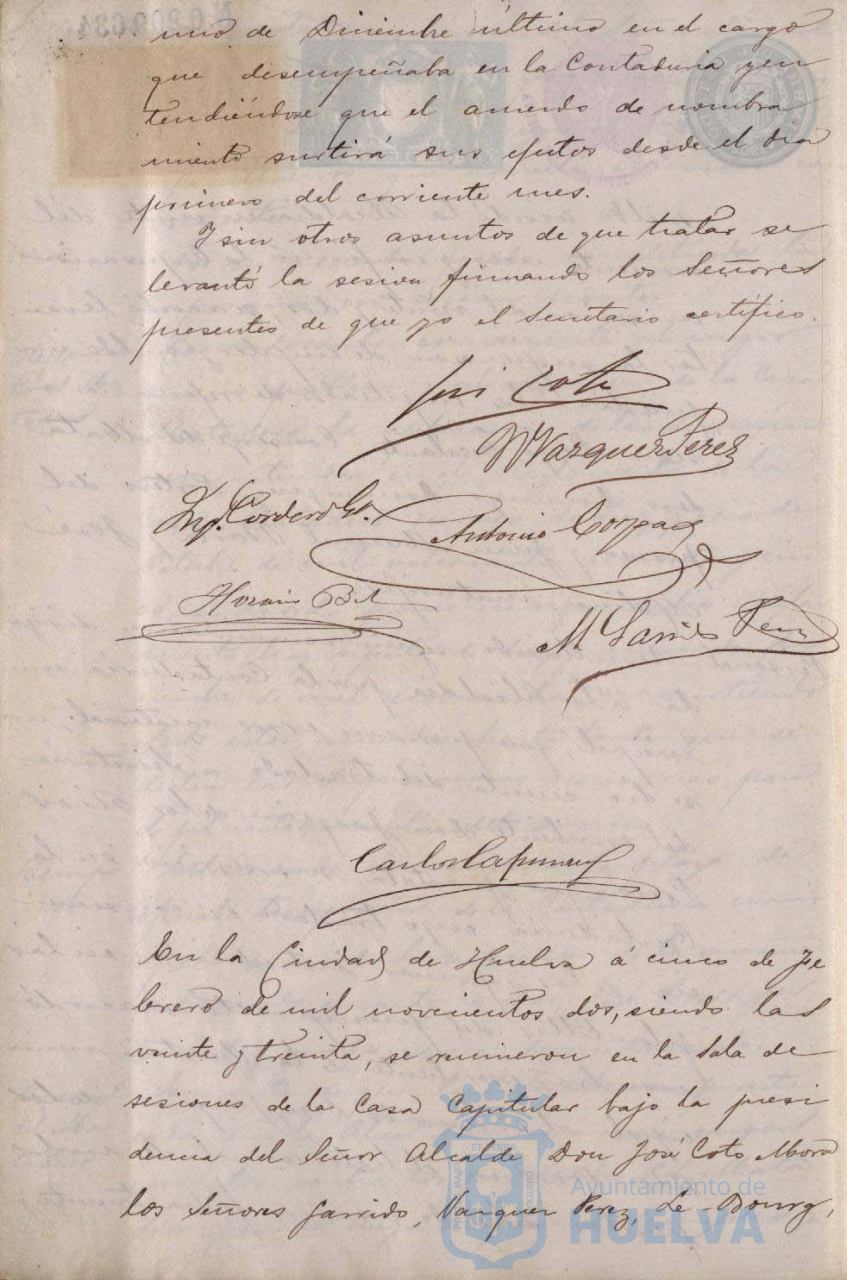 uno de Diciembre último en el cargo
que desempeñaba en la Contaduria y en
tendiéndose que el acuerdo de nombra
miento surtirá sus efectos desde el dia
primero del corriente mes.
Y sin otros asuntos de que tratar se
levantó la sesion firmando los Señores
presentes de que yo el Secretario certifico.
José Coto
M Vazquez Perez
Cordero
Antonio
M Garrido Perez
Carlos
En la Ciudad de Huelva á cinco de Fe
brero de mil novecientos dos, siendo las
veinte y treinta, se reunieron en la Sala de
sesiones de la Casa Capitular bajo la presi
dencia del Señor Alcalde Don José Coto Mora
los Señores Garrido, Vazquez Perez, Le-Bourg,
Ayuntamiento de
HUELVA